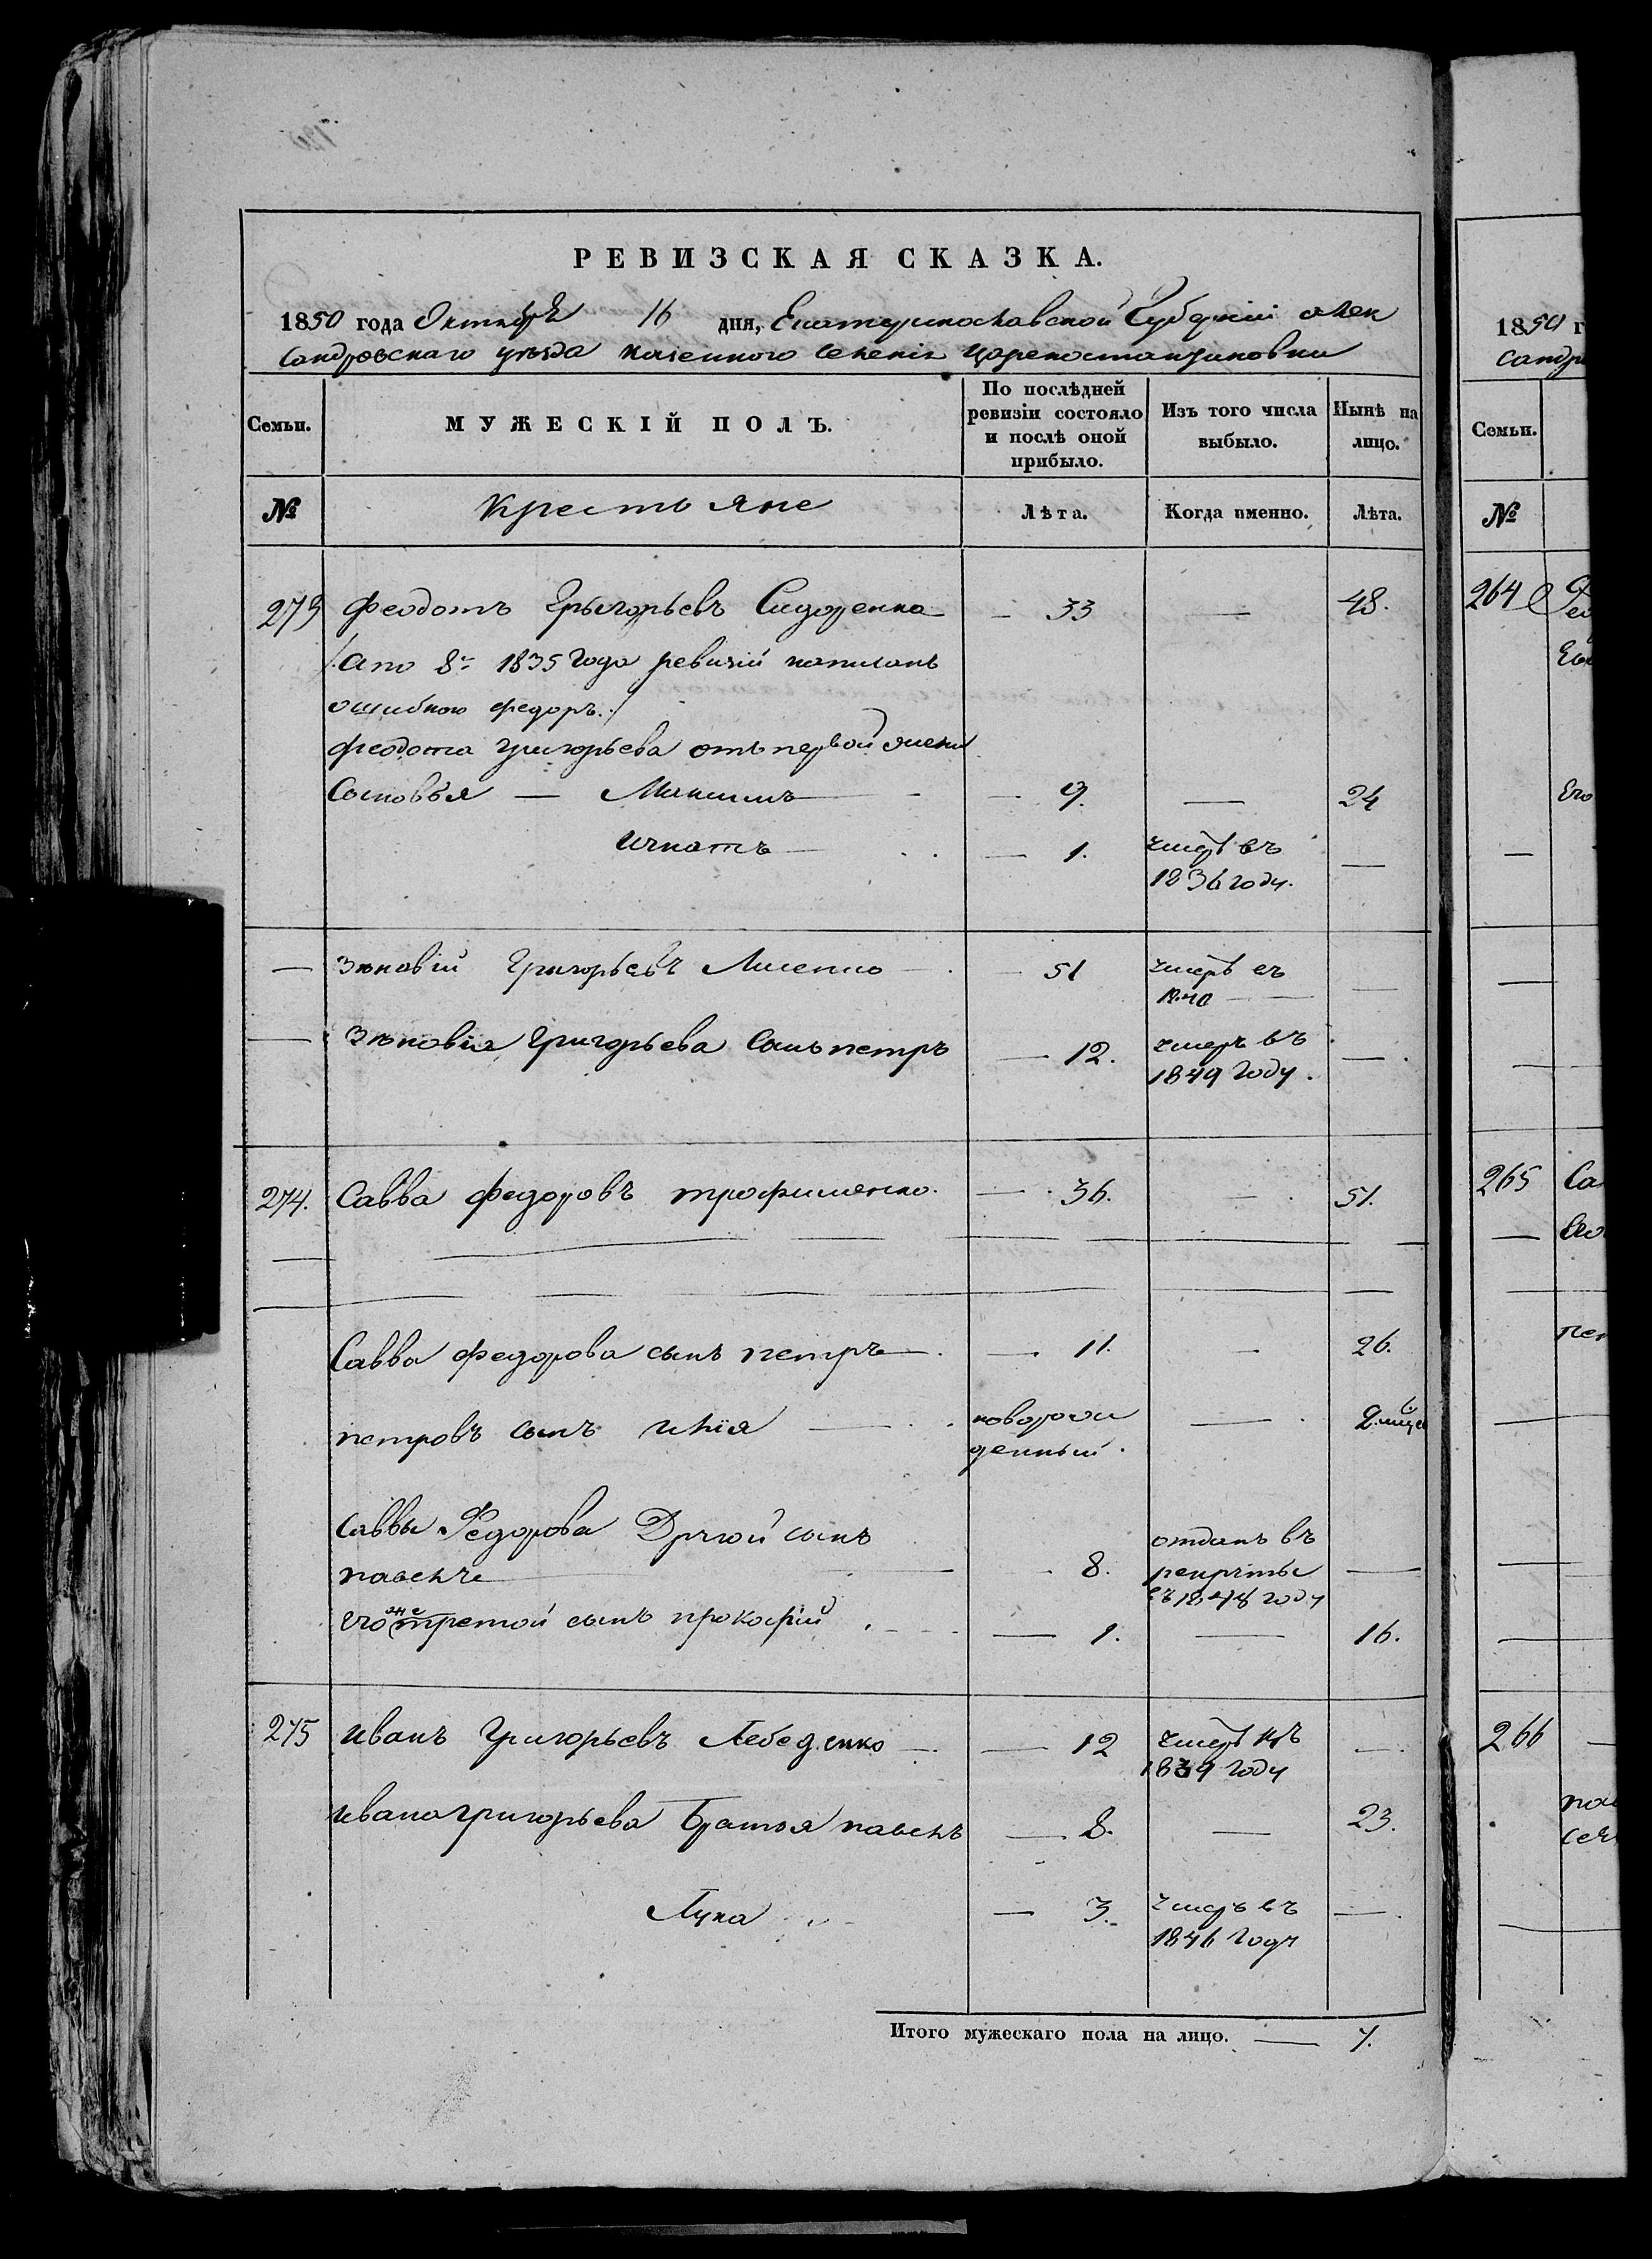 РЕВИЗСКАЯ СКАЗКА.
1850 года Октября 16 дня, Екатеринославской Губерніи Алек
сандровскаго уезда казенного селенія Цареконстантиновки
Семьи.
МУЖЕСКІЙ ПОЛЪ.
По послѣдней
ревизіи состояло
и послѣ оной
прибыло.
Изъ того числа
выбыло.
Нынѣ на
лицо.
№ Крестьяне Лѣта. Когда именно. Лѣта.
273 Феодотъ Григорьевъ Сидоренко — 33 — 48.
/: а по 8й 1835 года ревизіи написанъ
ошибкою Федоръ :/
Феодота Григорьева отъ первой жены
Сыновья — Максимъ — 9. — 24
Игнатъ — 1. умеръ въ —
1836 году.
— Зиновій Григорьевъ Лисенко — 51 умеръ въ —
1840 —
— Зиновія Григорьева сынъ петръ — 12. умеръ въ —
1849 году.
274. Савва Федоровъ трофименко. — 36. — 51.
Савва Федорова сынъ петръ — 11. — 26.
петровъ сынъ илія — новорож — 2. месец
денный.
Саввы Федорова Другой сынъ отданъ въ
павелъ — 8. рекруты —
въ 1848 году
его же третой сынъ прокофій — 1. — 16.
275 иванъ Григорьевъ Лебеденко — 12 умеръ въ —
1839 году
ивана григорьева Братья павелъ — 8. — 23.
Лука — 3. умеръ въ —
1846 году
Итого мужескаго пола на лицо. — 7.
1850 г
сандр
Семьи.
№
264
265 Са
266